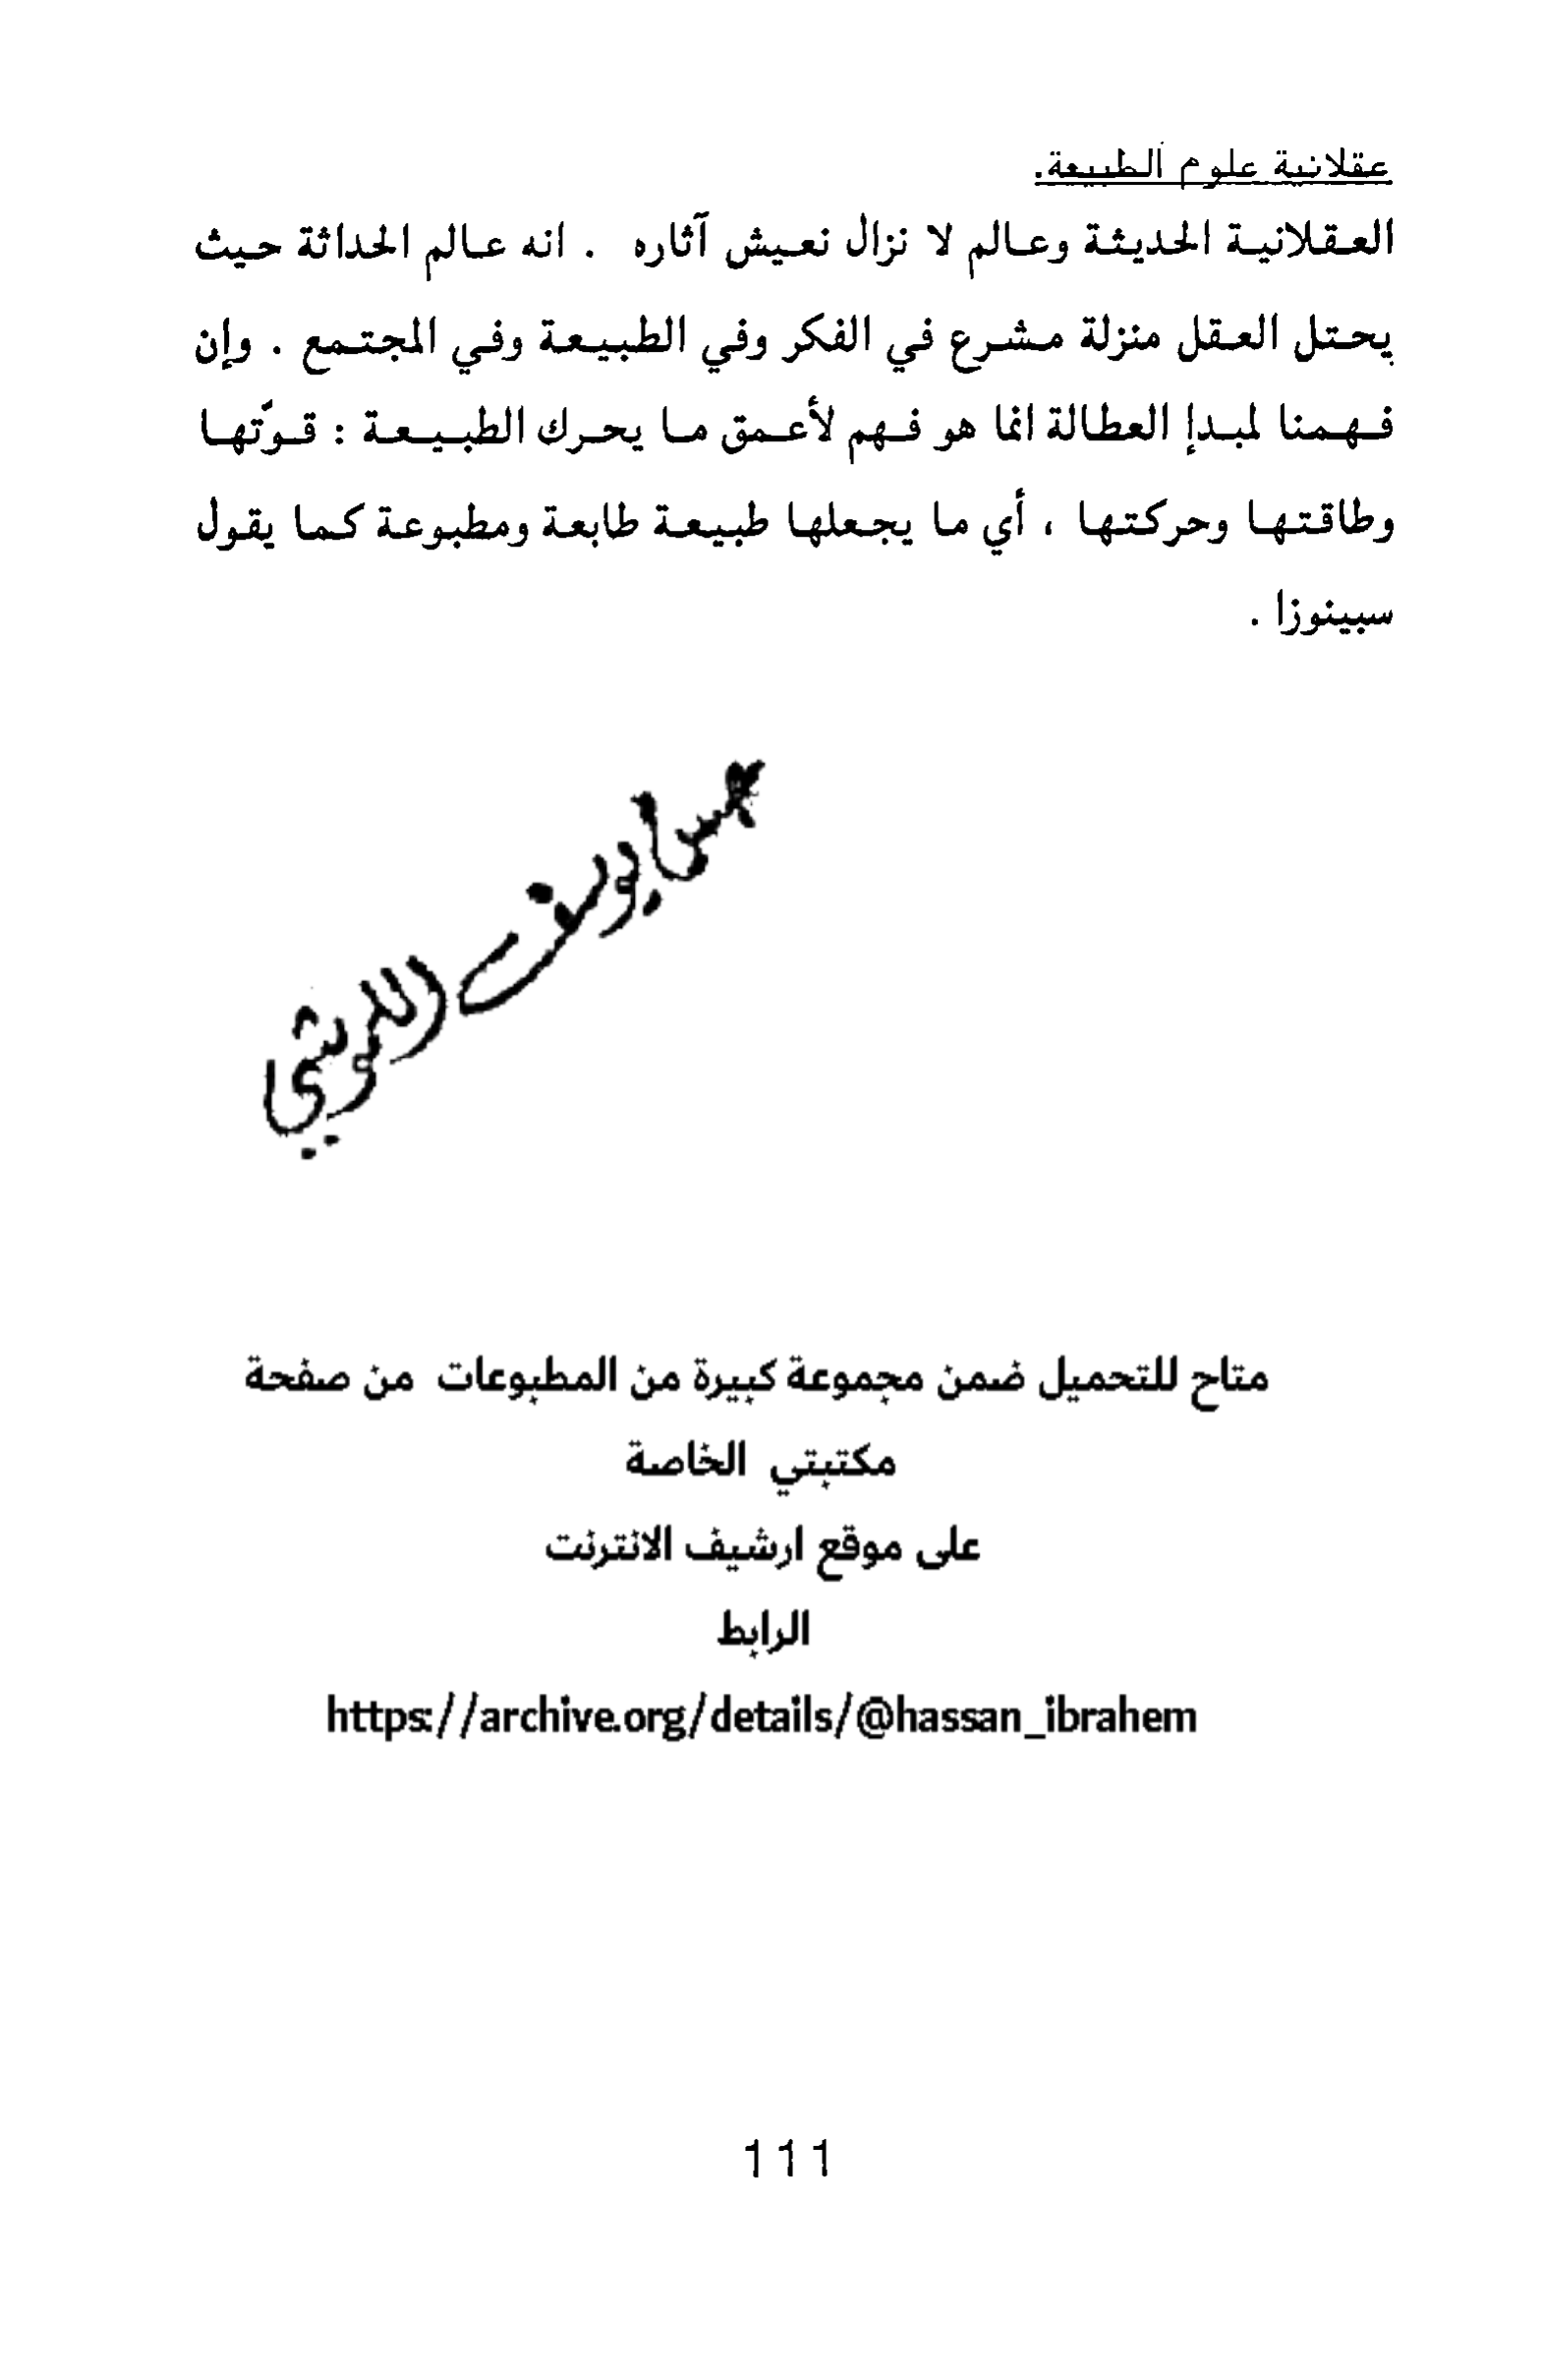 عقلانية علوم الطبيعة.
العقلانية الحديثة وعالم لا نزال نعيش آثاره . انه عالم الحداثة حيث
يحتل العقل منزلة مشرع في الفكر وفي الطبيعة وفي المجتمع . وإن
فهمنا لمبدإ العطالة انما هو فهم لأعمق ما يحرك الطبيعة : قوّتها
وطاقتها وحركتها ، أي ما يجعلها طبيعة طابعة ومطبوعة كما يقول
سبينوزا .
يوسف
متاح للتحميل ضمن مجموعة كبيرة من المطبوعات من صفحة
مكتبتي الخاصة
على موقع ارشيف الانترنت
الرابط
https://archive.org/details/@hassan_ibrahem
111